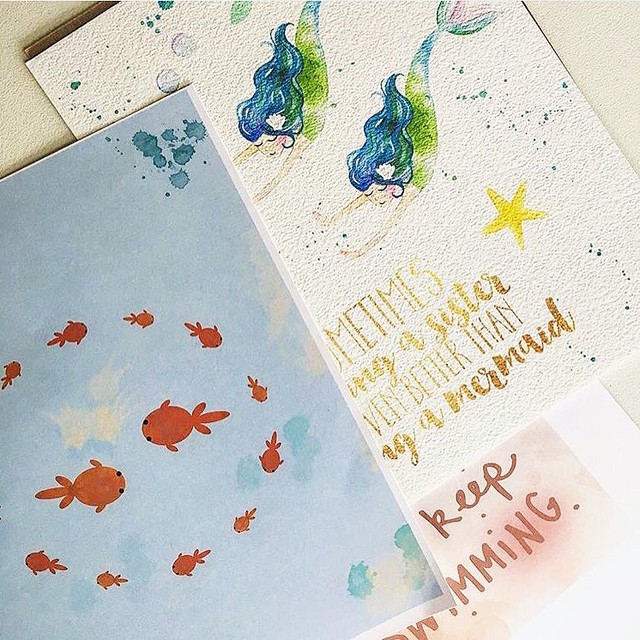 OMETIMES
ing a sister
VEN BETTER THAN
ng a mermaid
keep
WIMMING.